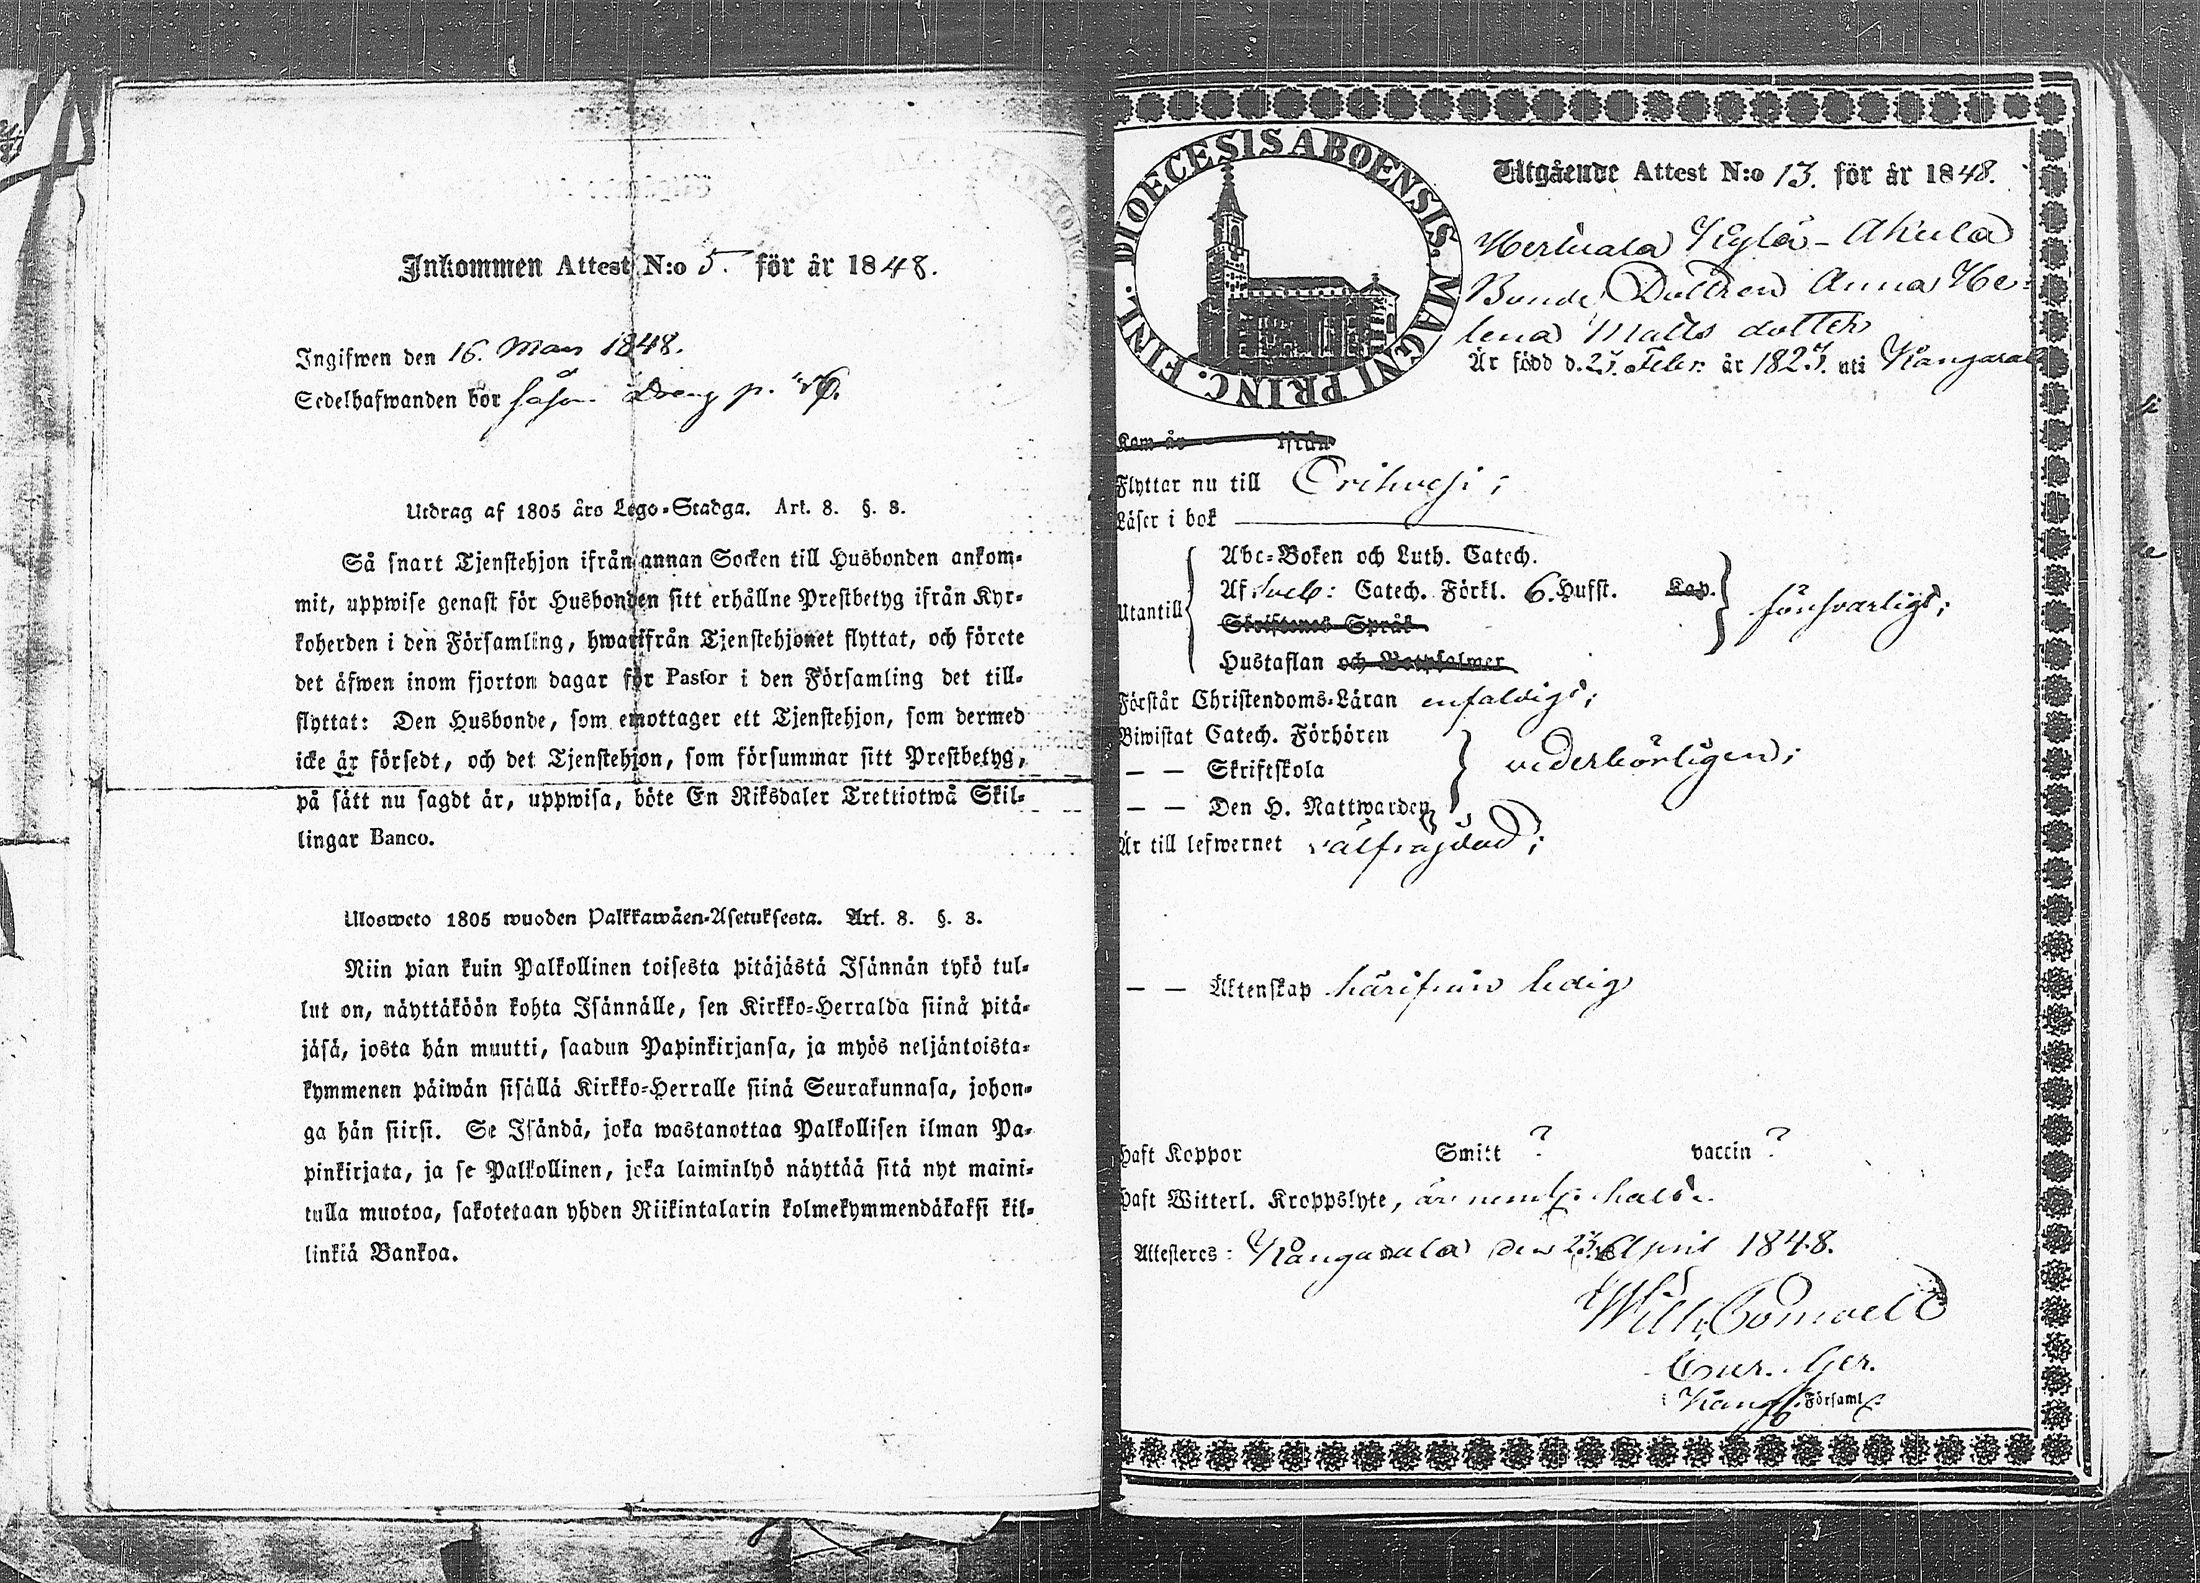 Inkommen Attest N:o 5. för år 1848.
Ingifwen den 16. Maii 1848.
Sedelhafwanden bor
Utdrag af 1805 års Lego-Stadga. Art. 8. §. 8.
Så snart Tjenstehjon ifrån annan Socken till Husbonden ankom-
mit, uppwise genast för Husbonden sitt erhållne Prestbetyg ifrån Kyr-
koherden i den Församling, hwarifrån Tjenstehjonet flyttat, och förete
det äfwen inom fjorton dagar för Pastor i den Församling det till-
flyttat: Den Husbonde, som emottager ett Tjenstehjon, som dermed
icke är försedt, och det Tjenstehjon, som försummar sitt Prestbetyg,
på sätt nu sagdt är, uppwisa, böte En Riksdaler Trettiotwå Skil-
lingar Banco.
Ulosweto 1805 wuoden Palkkawäen-Asetuksesta. Art. 8. §. 8.
Niin pian kuin Palkollinen toisesta pitäjästä Isännän tykö tul-
lut on, näyttäköön kohta Isännälle, sen Kirkko-Herralda siinä pitä-
jäsä, josta hän muutti, saadun Papinkirjansa, ja myös neljäntoista-
kymmenen päiwän sisällä Kirkko-Herralle siinä Seurakunnasa, johon-
ga hän siirsi. Se Isändä, joka wastanottaa Palkollisen ilman Pa-
pinkirjata, ja se Palkollinen, joka laiminlyö näyttää sitä nyt maini-
tulla muotoa, sakotetaan yhden Riikintalarin kolmekymmendäkaksi kil-
linkiä Bankoa.
DIOECESIS ABOENSIS. MAGNI PRINC. FINL.
Utgående Attest N:o 13. för år 1848.
Kylä-Ahula
Bonde Dottren Anna He-
lena Matts dotter
Är född d. 27. Febr. år 1827. uti Kangasala
Kom år ifrån
Flyttar nu till Orihvesi;
Läser i bok
Utantill
Abc-Boken och Luth. Catech.
Af Sveb: Catech. Förkl. 6. Hufst. Kap.
Skriftenes Språk
Hustaflan och Botpsalmer
försvarligt;
Förstår Christendoms-Läran enfaldigt;
Biwistat Catech. Förhören
— — Skriftskola
— — Den H. Nattwarden
vederbörligen;
Är till lefwernet välfrägdad;
— — Äktenskap härifrån ledig
Haft Koppor Smitt ? vaccin ?
Haft Witterl. Kroppslyte,
Attesteres: Kangasala den 23. April 1848.
Wilh.
Cur. Ger.
i Kang. Församl: